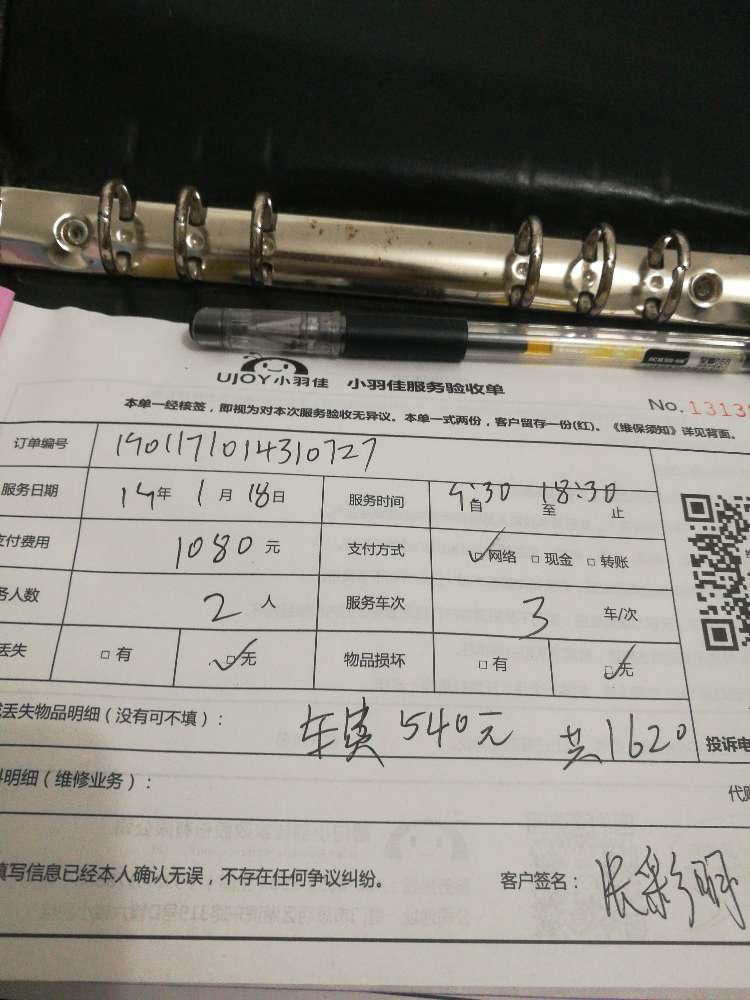 UJOY小羽佳 小羽佳服务验收单
No. 1313
本单一经核签，即视为对本次服务验收无异议。本单一式两份，客户留存一份(红)。《维保须知》详见背面。
订单编号 1901171014310727
服务日期 19年 1月 18日 服务时间 9:30自 18:30至 止
支付费用 1080元 支付方式 ☑网络 □现金 □转账
务人数 2人 服务车次 3 车/次
丢失 □有 ☑无 物品损坏 □有 ☑无
丢失物品明细（没有可不填）： 车费 540元 共1620
投诉电
料明细（维修业务）： 代
填写信息已经本人确认无误，不存在任何争议纠纷。 客户签名： 张彩明